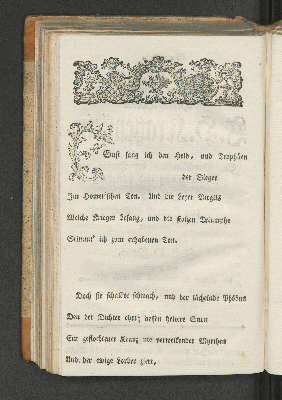 Sonst sang ich den Held, und Trophäen
der Sieger
Im Homer'schen Ton. Und die Leyer Virgils
Welche Krieger besang, und die stolzen Triumphe
Stimmt' ich zum erhabenen Ton.
Doch sie schallte schwach, und der lächelnde Phöbus
Den der Dichter ehrt; dessen heitere Stirn
Ein geflochtener Kranz nie verwelkender Myrthen
Und der ewige Lorber ziert,